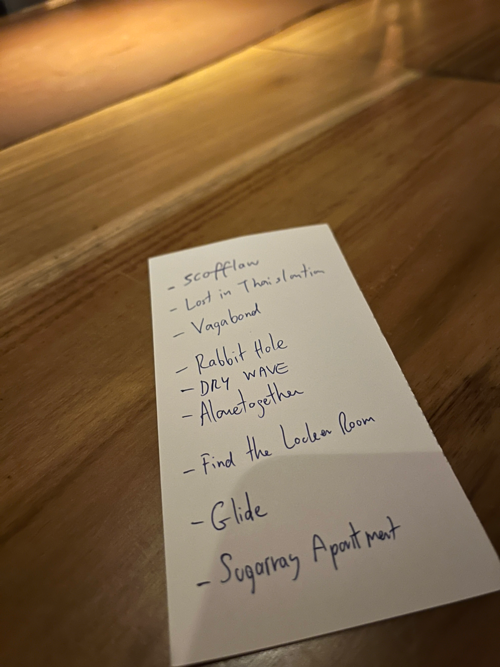 - scofflaw
- Lost in Thaislation
- Vagabond
- Rabbit Hole
- DRY WAVE
- Alonetogether
- Find the Locker Room
- Glide
- Sugarray Apartment